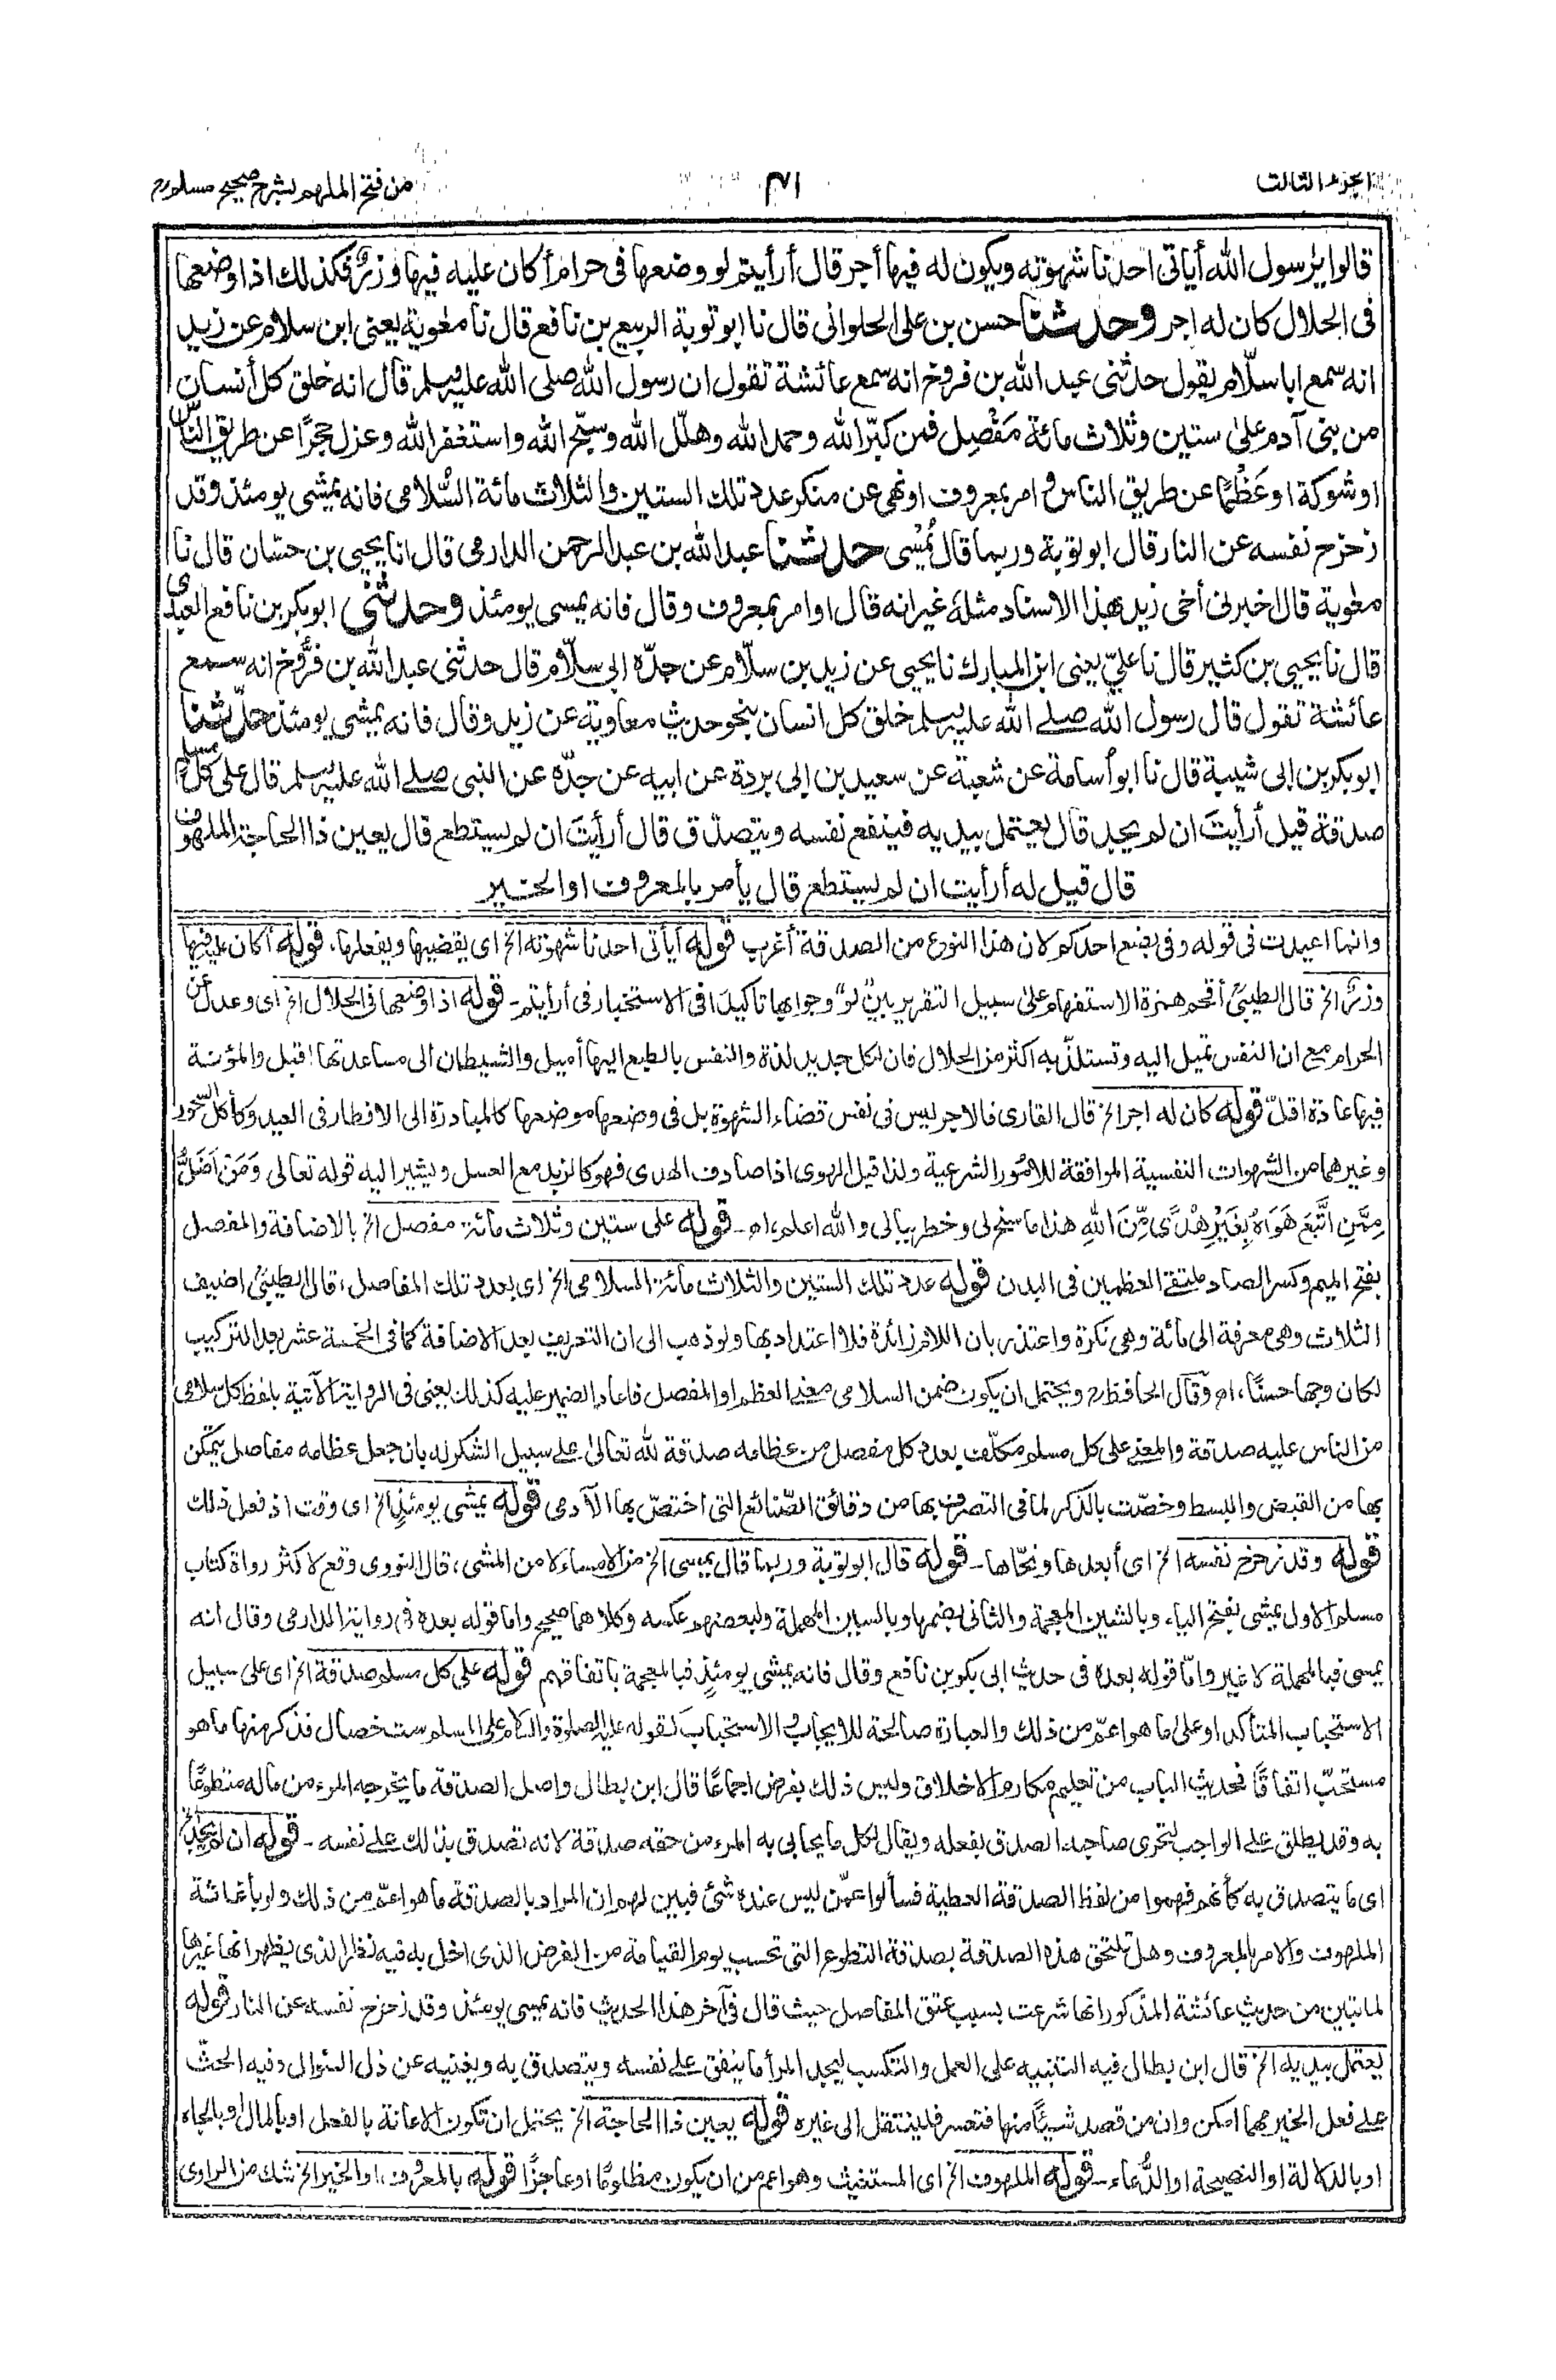 الجزء الثالث
٣١
من فتح الملهم بشرح صحيح مسلم
قالوا يٰرسول الله أياتى احدنا شهوته ويكون له فيها أجر قال أرأيتم لو وضعها فى حرام أكان عليه فيها وزرٌ فكذلك اذا وضعها
فى الحلال كان له اجر وحدثنا حسن بن على الحلوانى قال نا ابو توبة الربيع بن نافع قال نا معٰوية يعنى ابن سلام عن زيد
انه سمع ابا سلّام يقول حدثنى عبد الله بن فروخ انه سمع عائشة تقول ان رسول الله صلى الله عليه وسلم قال انه خلق كل أنسان
من بنى آدم على ستين وثلاث مائة مَفْصِل فمن كبّر الله وحمد الله وهلّل الله وسبّح الله واستغفر الله وعزل حجرًا عن طريق الناس
او شوكة او عَظْمًا عن طريق الناس و امر بمعروف او نهى عن منكر عدد تلك الستين والثلاث مائة السُّلامى فانه يمشى يومئذ وقد
زحزح نفسه عن النار قال ابو توبة وربما قال يُمْسى حدثنا عبد الله بن عبد الرحمن الدارمى قال انا يحيى بن حسّان قال نا
معٰوية قال اخبرنى أخى زيد بهذا الاسناد مثله غير انه قال او امر بمعروف وقال فانه يمسى يومئذ وحدثنى ابو بكر بن نافع العبدى
قال نا يحيى بن كثير قال نا علىّ يعنى ابن المبارك نا يحيى عن زيد بن سلّام عن جدّه ابى سلّام قال حدثنى عبد الله بن فرُّوخ انه سمع
عائشة تقول قال رسول الله صلے الله عليه وسلم خلق كل انسان بنحو حديث معاوية عن زيد وقال فانه يمشى يومئذ حدّثنا
ابو بكر بن ابى شيبة قال نا ابو أسامة عن شعبة عن سعيد بن ابى بردة عن ابيه عن جدّه عن النبى صلے الله عليه وسلم قال على كل مسلم
صدقة قيل أرأيتَ ان لم يجد قال يعتمل بيديه فينفع نفسه ويتصدّق قال أرأيتَ ان لم يستطع قال يعين ذا الحاجة الملهوف
قال قيل له أرأيت ان لم يستطع قال يأمر بالمعروف او الخير
وانما اعيدت فى قوله وفى بضع احدكم لان هذا النوع من الصدقة أغرب قوله أيأتى احدنا شهوته الخ اى يقضيها ويفعلها، قوله أكان عليه فيها
وزرٌ الخ قال الطيبىؒ أقحم همزة الاستفهام على سبيل التقرير بين لو وجوابها تاكيدا فى الاستخبار فى أرأيتم۔ قوله اذا وضعها فى الحلال الخ اى وعدل عن
الحرام مع ان النفس تميل اليه وتستلذّ به اكثر من الحلال فان لكل جديد لذة والنفس بالطبع اليها أميل والشيطان الى مساعدتها اقبل والمؤنة
فيها عادة اقلّ قوله كان له اجر الخ قال القارى فالاجر ليس فى نفس قضاء الشهوة بل فى وضعها موضعها كالمبادرة الى الافطار فى العيد وكأكل السحور
وغيرهما من الشهوات النفسية الموافقة للامُور الشرعية ولذا قيل الهوى اذا صادف الهدى فهو كالزبد مع العسل ويشير اليه قوله تعالى وَمَنْ اَضَلُّ
مِمَّنِ اتَّبَعَ هَوَاهُ بِغَيْرِ هُدًى مِّنَ اللهِ هذا ما سنح لى وخطر ببالى والله اعلم، اھ۔ قوله على ستين وثلاث مائة مفصل الخ بالاضافة والمفصل
بفتح الميم وكسر الصاد ملتقے العظمين فى البدن قوله عدد تلك الستين والثلاث مائة السلامى الخ اى بعدد تلك المفاصل، قال الطيبىؒ اضيف
الثلاث وهى معرفة الى مائة وهى نكرة واعتذر بان اللام زائدة فلا اعتداد بها ولو ذهب الى ان التعريف بعد الاضافة كما فى الخمسة عشر بعد التركيب
لكان وجها حسنًا، اھ وقال الحافظؒ ويحتمل ان يكون ضمن السلامى معنے العظم او المفصل فاعاد الضمير عليه كذلك يعنى فى الرواية الآتية بلفظ كل سلامى
من الناس عليه صدقة والمعنے على كل مسلم مكلّف بعدد كل مفصل من عظامه صدقة لله تعالىٰ علے سبيل الشكر له بان جعل عظامه مفاصل يتمكن
بها من القبض والبسط وخصّت بالذكر لما فى التصرف بها من دقائق الصّنائع التى اختصّ بها الآدمى قوله يمشى يومئذٍ الخ اى وقت اذ فعل ذلك
قوله وقد زحزح نفسه الخ اى أبعدها ونحّاها۔ قوله قال ابو توبة وربما قال يمسى الخ من الامساء لا من المشى، قال النووى وقع لاكثر رواة كتاب
مسلم الاول يمشى بفتح الياء وبالشين المعجمة والثانى بضمها وبالسين المهملة ولبعضهم عكسه وكلاهما صحيح واما قوله بعده فى رواية الدارمى وقال انه
يمسى فبالمهملة لا غير وامّا قوله بعده فى حديث ابى بكر بن نافع وقال فانه يمشى يومئذٍ فبالمعجمة باتفاقهم قوله على كل مسلم صدقة الخ اى على سبيل
الاستحباب المتأكد او على ما هو اعمّ من ذلك والعبارة صالحة للايجاب و الاستحباب كقوله عليه الصلوة والسلام على المسلم ست خصال فذكر منها ما هو
مستحبّ اتفاقًا فحديث الباب من تعليم مكارم الاخلاق وليس ذلك بفرض اجماعًا قال ابن بطال واصل الصدقة ما يخرجه المرء من ماله متطوعًا
به وقد يطلق علے الواجب لتحرى صاحبه الصدق بفعله ويقال لكل ما يحابى به المرء من حقه صدقة لانه تصدق بذلك علے نفسه۔ قوله ان لم يجد الخ
اى ما يتصدق به كأنهم فهموا من لفظ الصدقة العطية فسألوا عمّن ليس عنده شئ فبين لهم ان المراد بالصدقة ما هو اعمّ من ذلك ولو بأغاثة
الملهوف والامر بالمعروف وهل تلتحق هذه الصدقة بصدقة التطوع التى تحسب يوم القيامة من الفرض الذى اخل به فيه نظر الذى يظهر انها غيرها
لما تبين من حديث عائشة المذكور انها شرعت بسبب عتق المفاصل حيث قال فى آخر هذا الحديث فانه يمسى يومئذ وقد زحزح نفسه عن النار قوله
يعتمل بيديه الخ قال ابن بطال فيه التنبيه على العمل والتكسب ليجد المرأ ما ينفق علے نفسه ويتصدق به ويغنيه عن ذل السؤال وفيه الحثّ
علے فعل الخير مهما امكن وان من قصد شيئًا منها فتعسر فلينتقل الى غيره قوله يعين ذا الحاجة الخ يحتمل ان تكون الاعانة بالفعل او بالمال او بالجاه
او بالدلالة او النصيحة او الدُّعاء۔ قوله الملهوف الخ اى المستغيث وهو اعم من ان يكون مظلومًا او عاجزًا قوله بالمعروف، او الخير الخ شك من الراوى